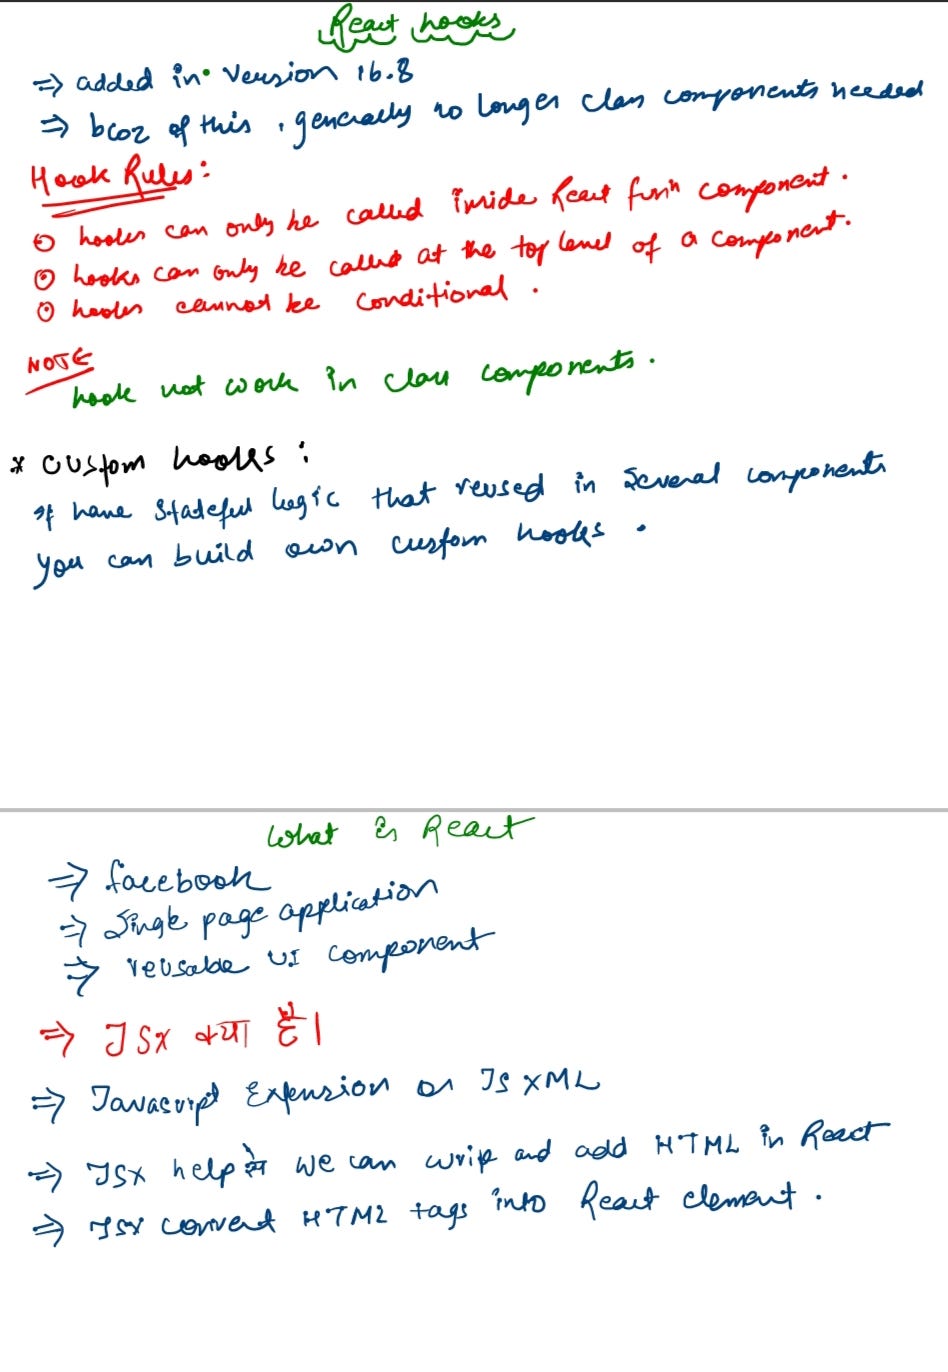 React hooks
⇒ added in version 16.8
⇒ bcoz of this, generally no longer class components needed
Hook Rules:
hooks can only be called inside React funⁿ component.
hooks can only be called at the top level of a component.
hooks cannot be conditional.
NOTE
hook not work in class components.
* Custom hooks:
If have stateful logic that reused in several components
you can build own custom hooks.
What is React
⇒ facebook
⇒ Single page application
⇒ reusable UI component
⇒ JSX क्या है।
⇒ Javascript Extension or JS XML
⇒ JSX help से we can write and add HTML in React
⇒ JSX convert HTML tags into React element.